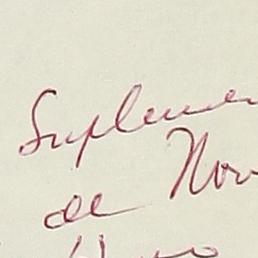 Supleme
de Nov